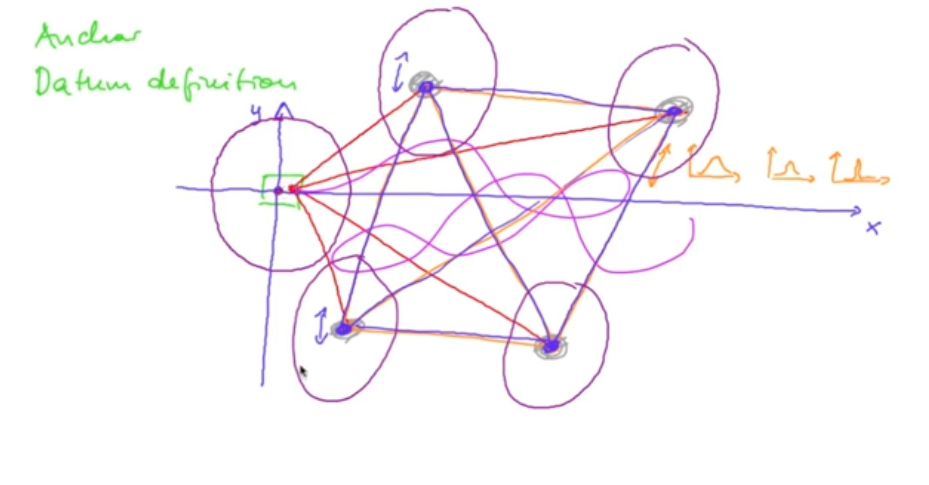 Anchor
Datum definition
y
x